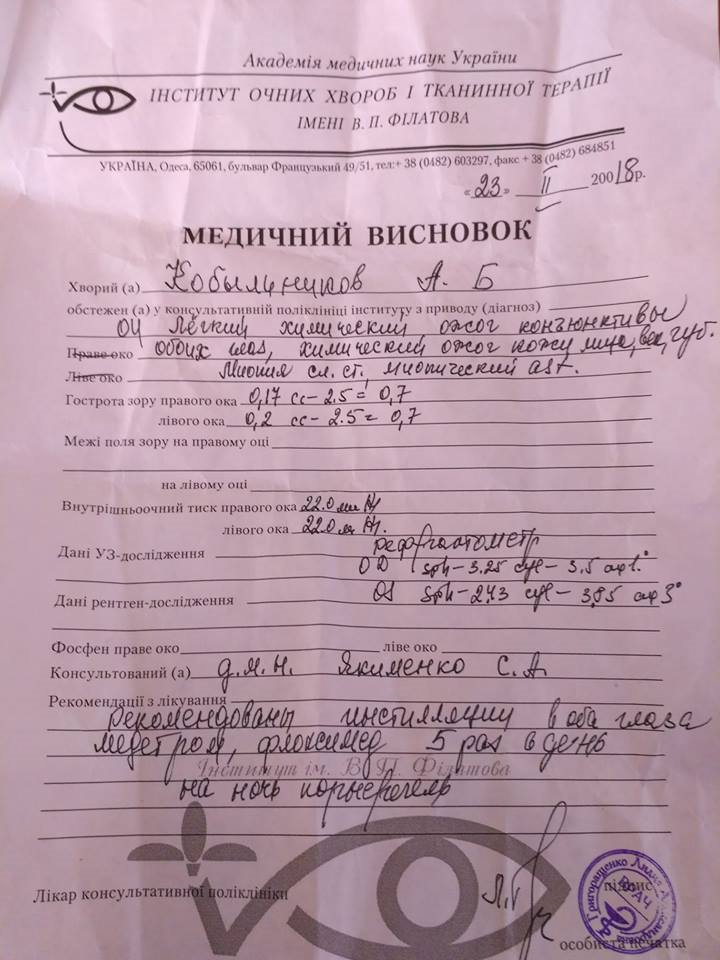 Академія медичних наук України
ІНСТИТУТ ОЧНИХ ХВОРОБ І ТКАНИННОЇ ТЕРАПІЇ
ІМЕНІ В. П. ФІЛАТОВА
УКРАЇНА, Одеса, 65061, бульвар Французький 49/51, тел:+ 38 (0482) 603297, факс + 38 (0482) 684851
«23» II 20018р.
МЕДИЧНИЙ ВИСНОВОК
Хворий (а) Кобылинцков А. Б
обстежен (а) у консультативній поліклініці інституту з приводу (діагноз)
ОИ Легкий химический ожог конъюнктивы
Праве око обоих глаз, химический ожог кожи лица, век, губ.
Ліве око Миопия сл. ст, миопический ast.
Гострота зору правого ока 0,17 cc - 2.5 = 0,7
лівого ока 0,2 cc - 2.5 = 0,7
Межі поля зору на правому оці
на лівому оці
Внутрішньоочний тиск правого ока 22.0 мм Hg
лівого ока 22.0 мм Hg.
Дані УЗ-дослідження рефрактометр
OD sph - 3.25 cyl - 3,5 ax 1°
Дані рентген-дослідження OS sph - 2.73 cyl - 3,85 ax 3°
Фосфен праве око ліве око
Консультований (а) д.м.н. Якименко С. А
Рекомендації з лікування
Рекомендованы инстилляции в оба глаза
медетром, флоксимед 5 раз в день
Інститут ім. В. П. Філатова
на ночь корнерегель
Лікар консультативної поліклініки
підпис
Григоращенко Лидия Александровна
ВРАЧ
особиста печатка